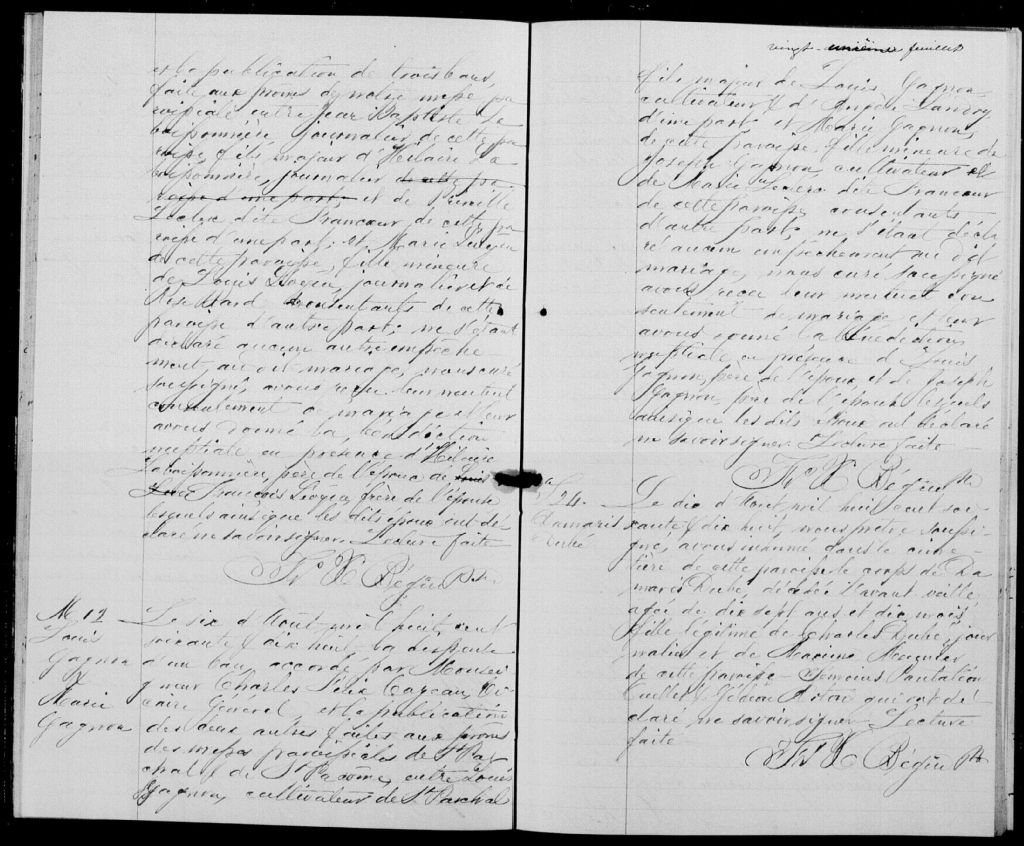 et la publication de trois bans
faite aux prônes de notre messe pa
roissiale entre Jean Baptiste La
boissonnière, journalier de cette pa
roisse, fils majeur d'Hilaire La
boissonnière, journalier de cette pa
roisse d'une part, et de
Leclerc dite Francoeur de cette pa
roisse d'une part; et Marie
de cette paroisse, fille mineure
de Louis journalier et de
consentants de cette
paroisse d'autre part; ne s'étant
déclaré aucun autre empêche
ment, au dit mariage, nous curé
soussigné, avons reçu leur mutuel
consentement de mariage et leur
avons donné la bénédiction
nuptiale en présence d'Hilaire
Laboissonnière, père de l'époux de
François frère de l'épouse
lesquels ainsi que les dits époux ont dé
claré ne savoir signer. Lecture faite
Frs X Bégin Ptr.
M 12
Louis
Gagnon
&
Marie
Gagnon
Le six d'Août mil huit cent
soixante & dix huit, la dispense
d'un ban accordé par Monsei
gneur Charles Félix Cazeau, Vi
caire Général, et la publication
des deux autres faites aux prônes
des messes paroissiales de St Pas
chal & de St Pacôme, entre Louis
Gagnon, cultivateur de St Paschal
vingt-unième feuillet
fils majeur de Louis Gagnon
cultivateur & d'Angèle Landry
d'une part et Marie Gagnon
de cette paroisse fille mineure de
Joseph Gagnon, cultivateur et
de Marie Leclerc dite Francoeur
de cette paroisse consentants
d'autre part; ne s'étant décla
ré aucun empêchement au dit
mariage, nous curé soussigné
avons reçu leur mutuel con
sentement de mariage et leur
avons donné la bénédiction
nuptiale en présence de Louis
Gagnon, père de l'époux, et de Joseph
Gagnon, père de l'épouse lesquels
ainsi que les dits époux ont déclaré
ne savoir signer. Lecture faite
Frs X Bégin Ptr
S 24.
Damaris
Dubé
Le dix d'Août mil huit cent soi
xante & dix huit, nous prêtre soussi
gné, avons inhumé dans le cime
tière de cette paroisse le corps de Da
maris Dubé, décédée l'avant veille
agée de dix sept ans et dix mois,
fille légitime de Charles Dubé, jour
nalier et de Maxime
de cette paroisse. Témoins Pantaléon
Ouellet & Gédéon qui ont dé
claré ne savoir signer. Lecture
faite
Frs X Bégin Ptr